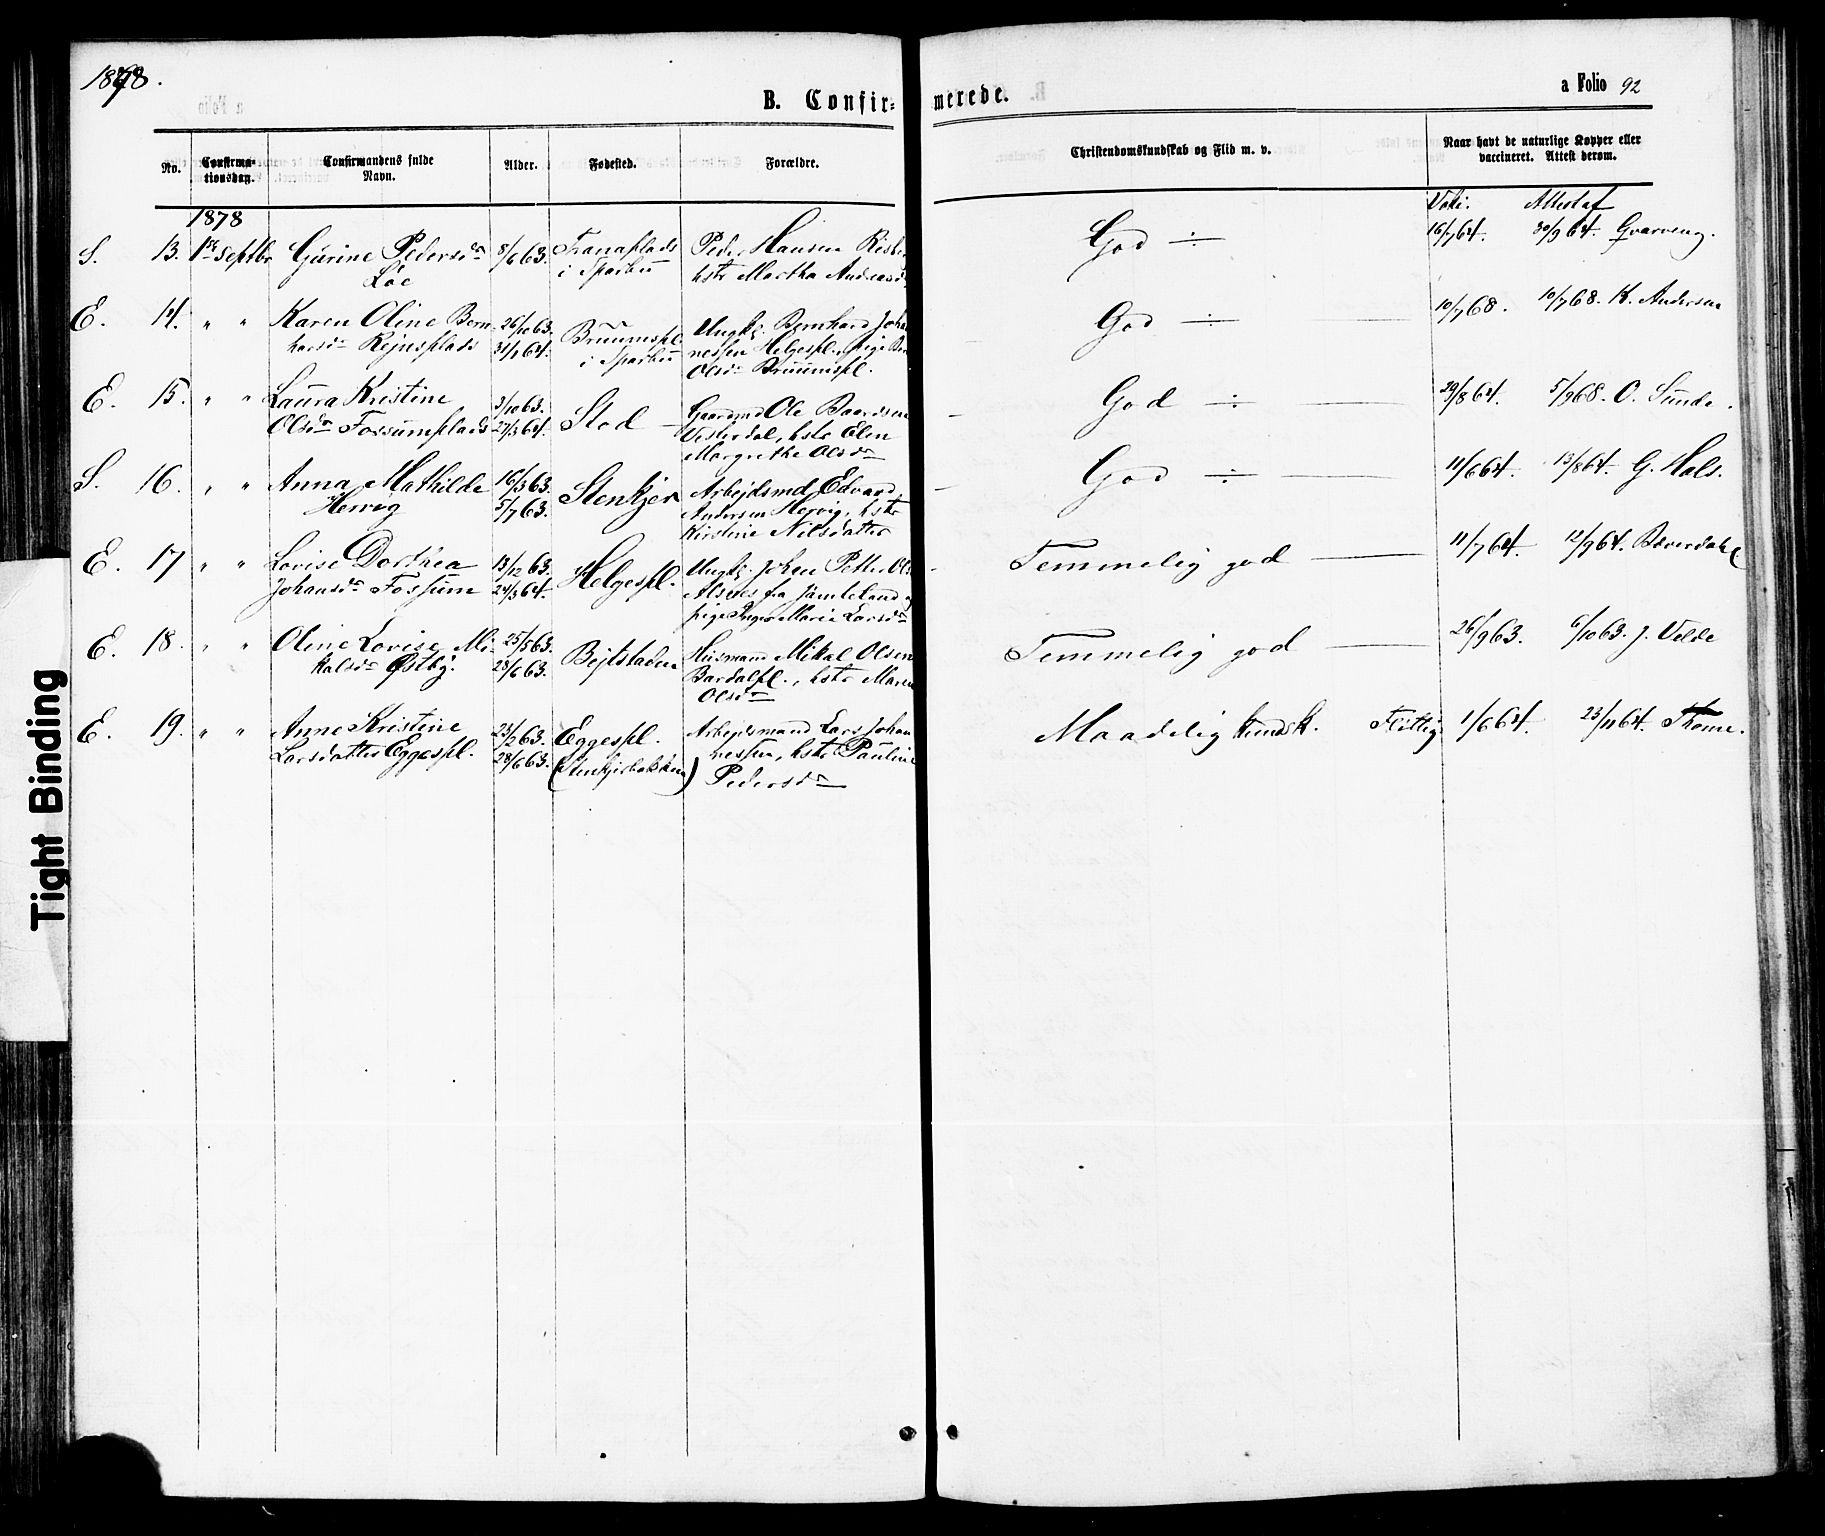 1878.
B. Confir=
merede.
a Folio 92
No.
Confirma-
tionsdag.
Confirmandens fulde
Navn.
Alder.
Fødested.
Forældre.
Christendomskundskab og Flid m. v.
Naar havt de naturlige Kopper eller
vaccineret. Attest derom.
1878
S. 13. 1ste Septbr Gurine Pedersdr 8/6 63. Tranaplads Peder Hansen
Løe i Sparbu hstr Martha Andreasdr
God ÷
Vaki. Attest af
16/7 64. 30/9 64. Qvarveng.
E. 14. " " Karen Oline Bern- 26/10 63. Bruumspl. Ungk. Bernhard Joha
hardsdr Rejnsplads 31/1 64. i Sparbu nessen Helgespl., pige
Olsdr Bruumspl.
God ÷
10/7 68. 10/7 68. K. Andersen
E. 15. " " Laura Kristine 3/10 63. Stod Gaardmd Ole Baardsen
Olsdr Fossumplads 27/3 64. Vesterdal, hstr Elen
Margrethe Olsdr
God ÷
29/8 64. 5/9 68. O. Sunde.
S. 16. " " Anna Mathilde 16/3 63. Stenkjer Arbejdsmd Edvard
Hervig 5/7 63. Andersen Hervig, hstr
Kirstine Nilsdatter
God ÷
11/6 64. 13/8 64. G. Hals.
E. 17 " " Lovise Dorthea 13/12 63. Helgespl. Ungk. Johan Petter Ols
Johansdr Fossum 24/3 64. Alsnes fra Jämteland og
pige Inger Marie Larsdr
Temmelig god
11/7 64. 12/9 64. Bæverdahl
E. 18. " " Oline Lovise Mi- 25/5 63. Bejtstaden Husmand Mikal Olsen
kalsdr Østby. 28/6 63. Bardalpl., hstr Maren
Olsdr
Temmelig god
26/9 63. 6/10 63. J. Velde
E. 19. " " Anne Kristine 23/2 63. Eggespl. Arbejdsmand Lars Johan
Larsdatter Eggespl. 28/6 63. (Stenkjerbakken) nessen, hstr Pauline
Pedersdr
Maadelig kundsk. Flittig
1/6 64. 23/11 64. Thome.
Tight Binding